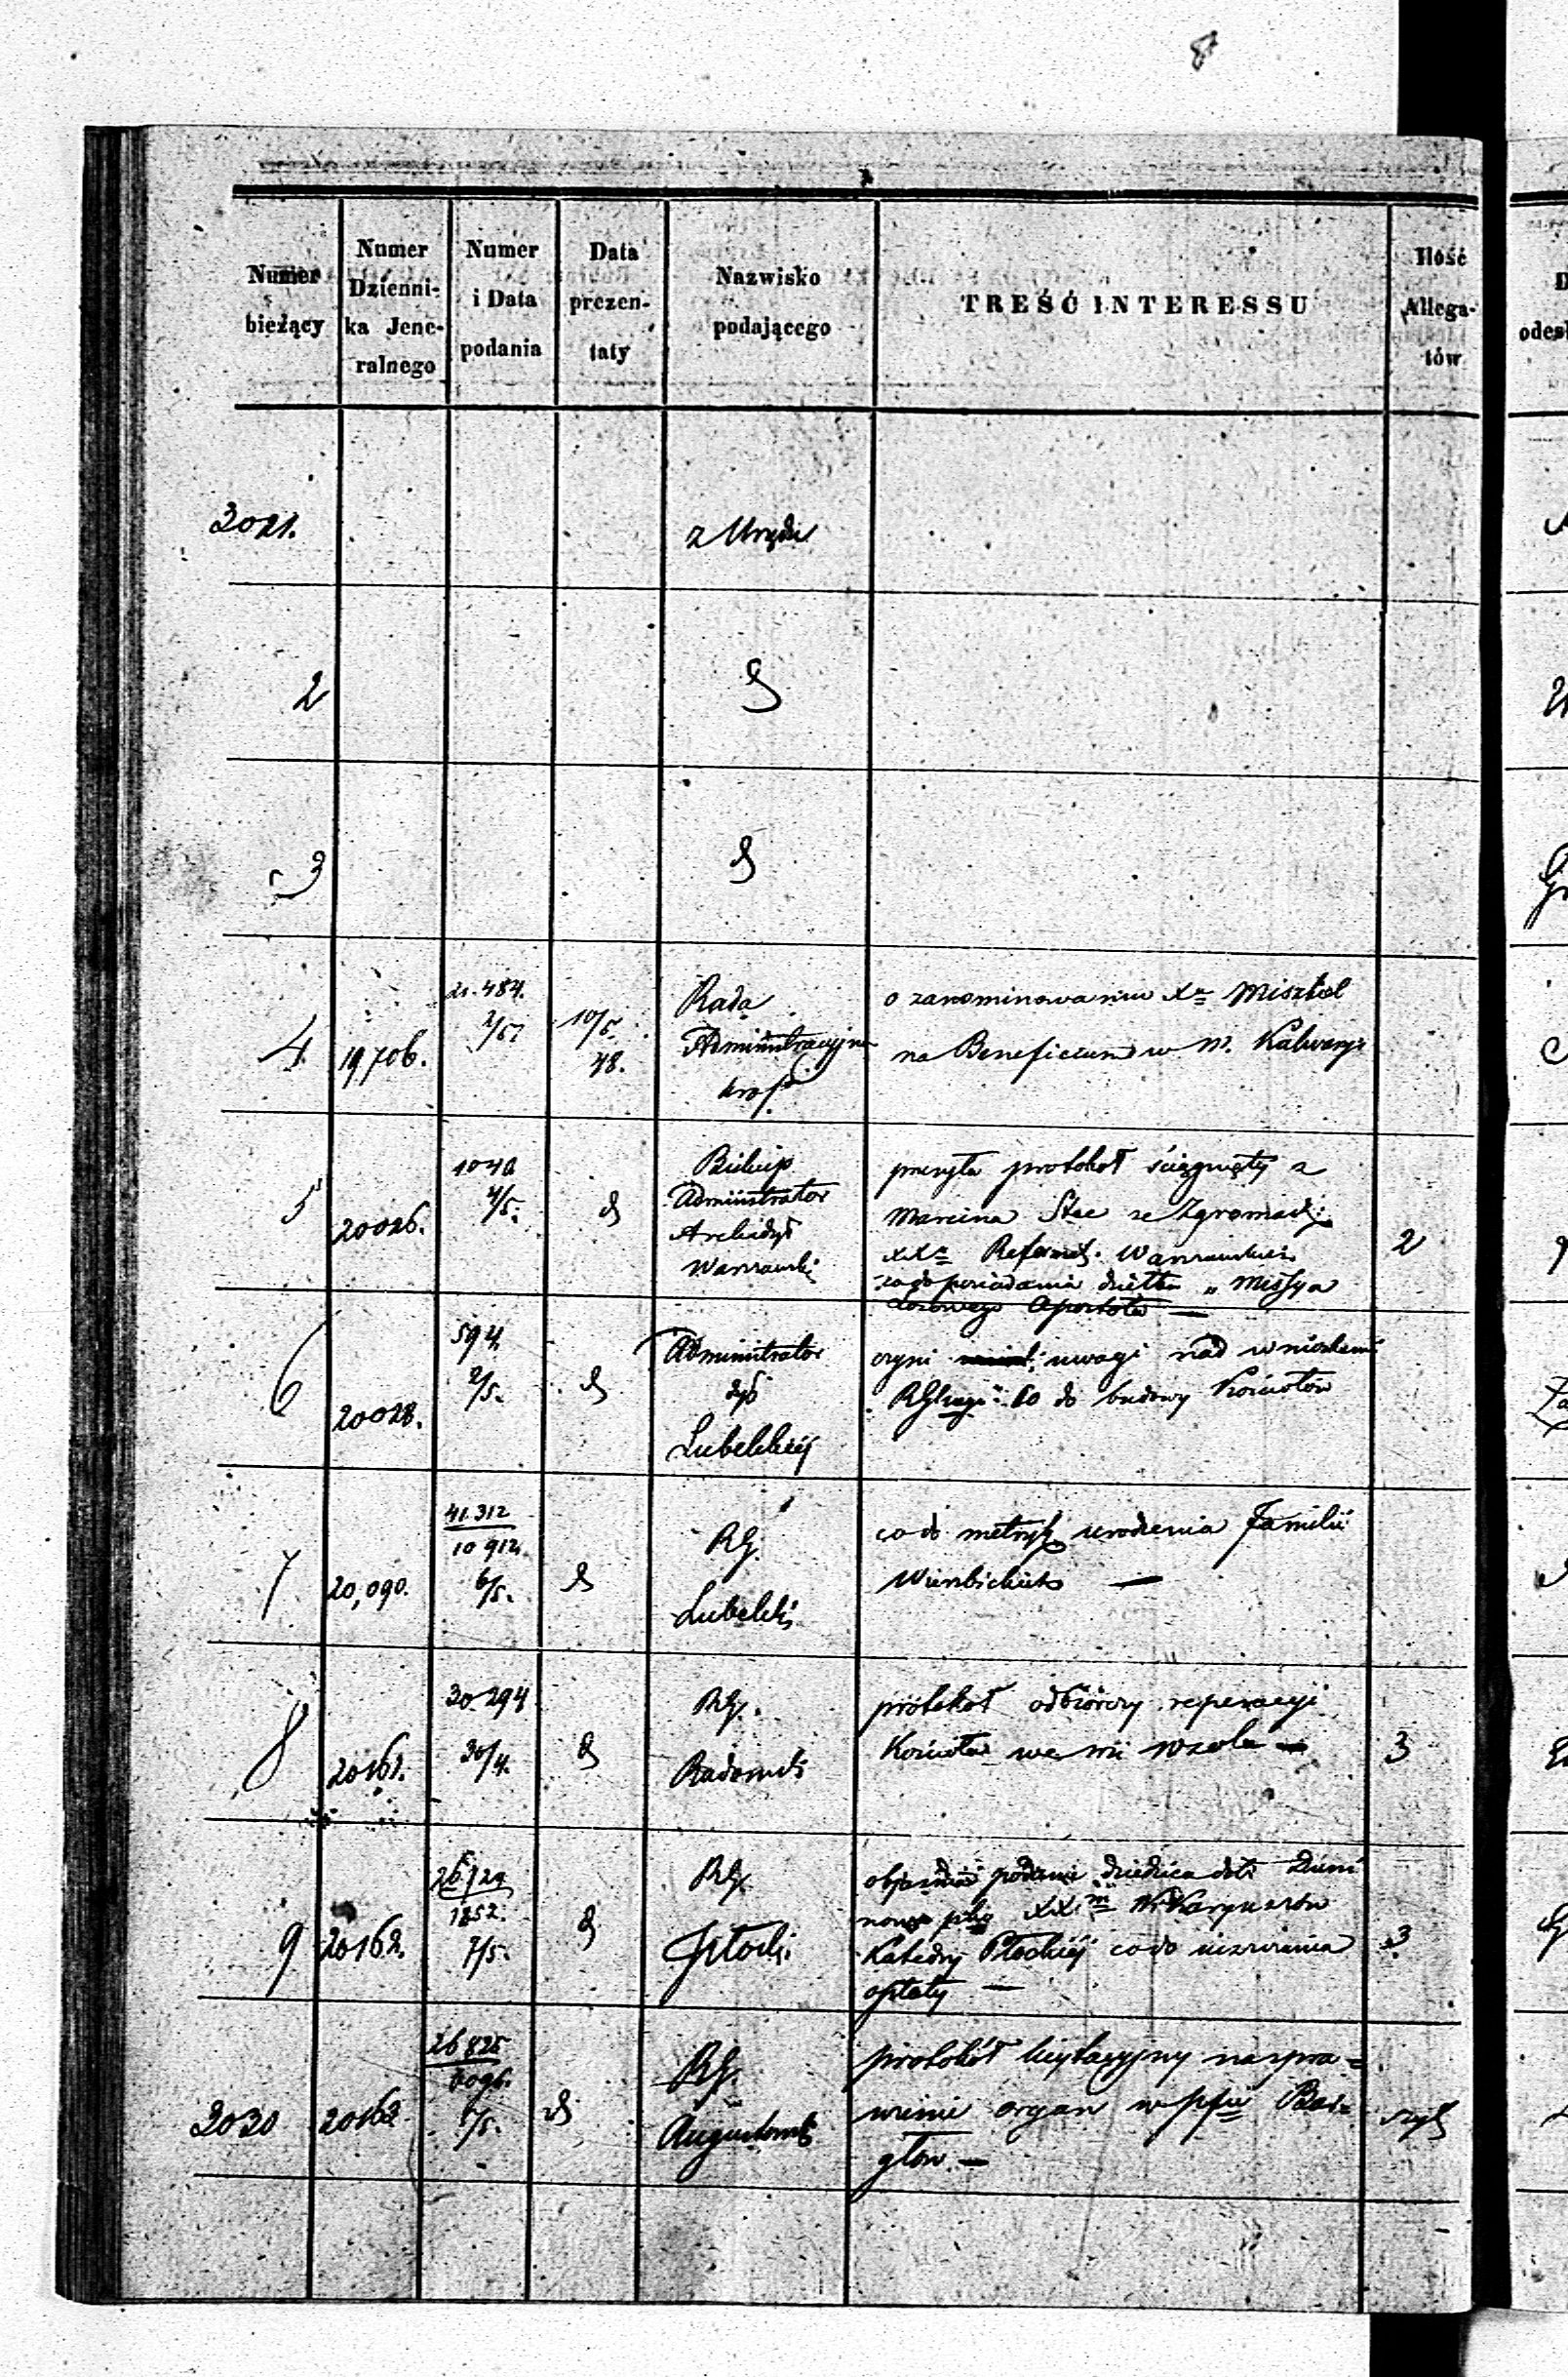 Numer bieżący
Numer Dzienni-ka Jene-ralnego
Numer i Data podania
Data prezen-taty
Nazwisko podającego
TREŚĆ INTERESSU
Ilość Allega-tów
3021. z Urzędu
2
3
4 19,706. 21.484. 10/5 48.
Rada
Administracyjna
o zanominowaniu Xa Misztal
na Beneficium w m. Kalwaryi
5 20026. 4/5.
Biskup
Administrator
Archidyec
Warszawski
przesyła protokół ściągnięty z
Marcina ze Zgromadz:
XXn Reformat. Warszawskich
co do posiadania dziełka „Missya
Apostoła —
2
6 20028. 594 2/5.
Administrator
Dyec
Lubelskiej
czyni uwagi nad wnioskami
co do budowy Kościołów
7 20,090. 41.312 10 912. 6/5.
RG.
Lubelski
co do metryk urodzenia Familii
Wierzbickich —
8 20161. 30.294 30/4.
RG.
Radomski
protokół odbiorczy reperacyi
Kościoła we wsi Wzola —
3
9 20162. 1852. 7/5.
RG.
Płocki
podanie dziedzica dóbr
XXm Wikaryuszów
Katedry Płockiej co do uiszczenia
opłaty —
3
3030 20163. 26 825 6096. /5.
RG.
Augustowski
protokół licytacyjny na spra=
wienie organ w pfii Bar=
głow. —
szyt